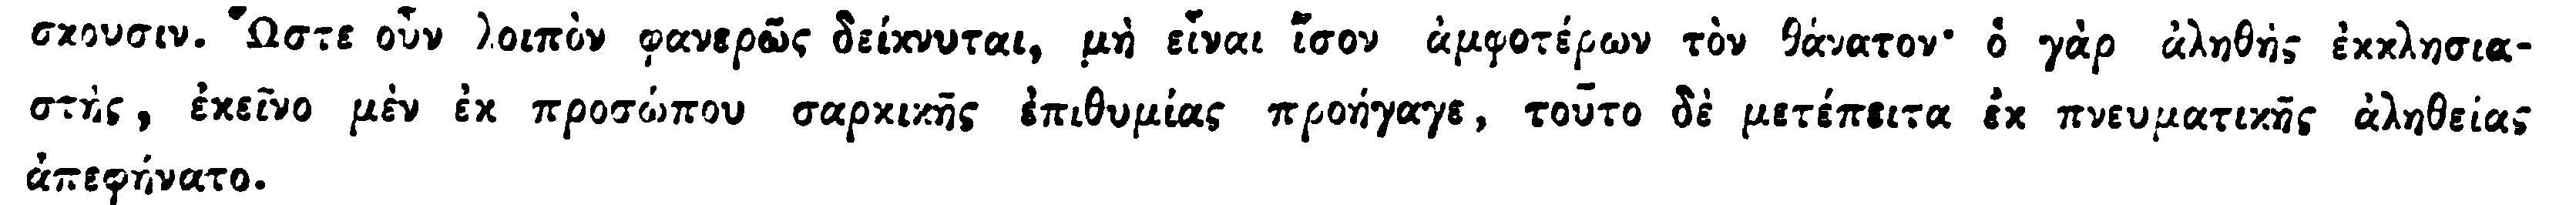 σκουσιν. Ὥστε οὖν λοιπὸν φανερῶς δείκνυται, μὴ εἶναι ἴσον ἀμφοτέρων τὸν θάνατον· ὁ γὰρ ἀληθὴς ἐκκλησια-
στὴς, ἐκεῖνο μὲν ἐκ προσώπου σαρκικῆς ἐπιθυμίας προήγαγε, τοῦτο δὲ μετέπειτα ἐκ πνευματικῆς ἀληθείας
ἀπεφήνατο.